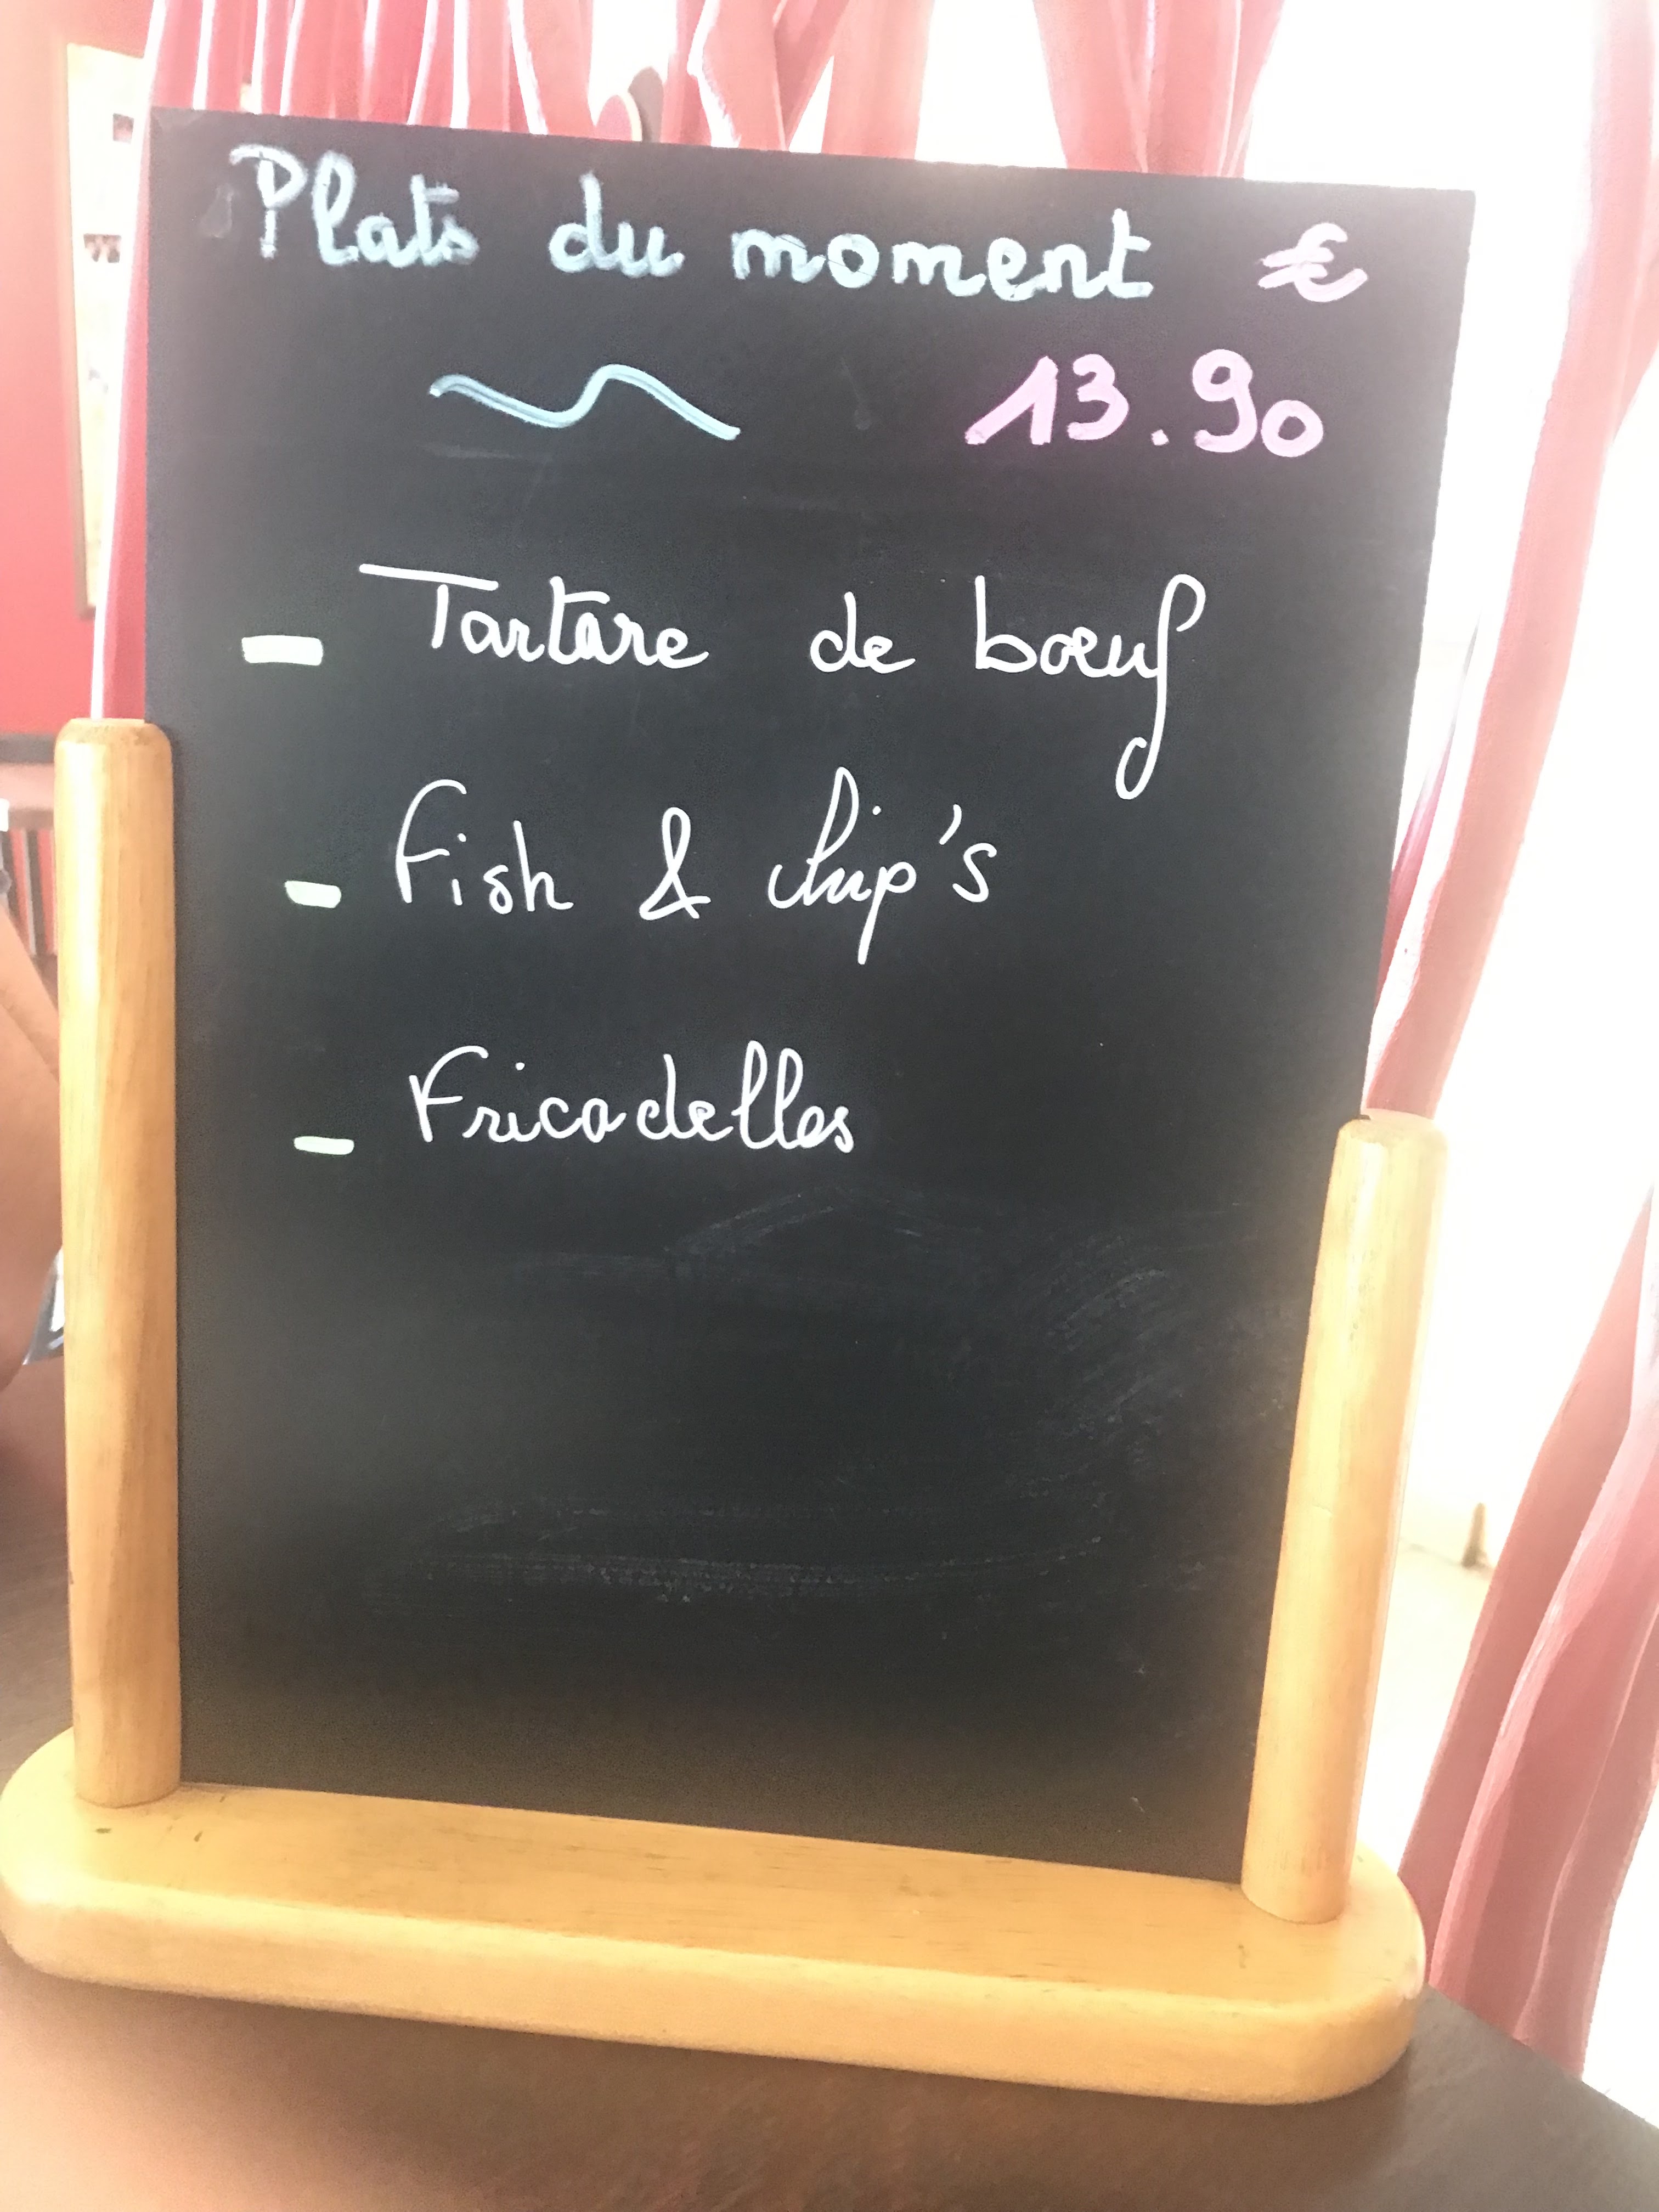 Plats du moment €
13.90
- Tartare de bœuf
- Fish & chip's
- Fricadelles